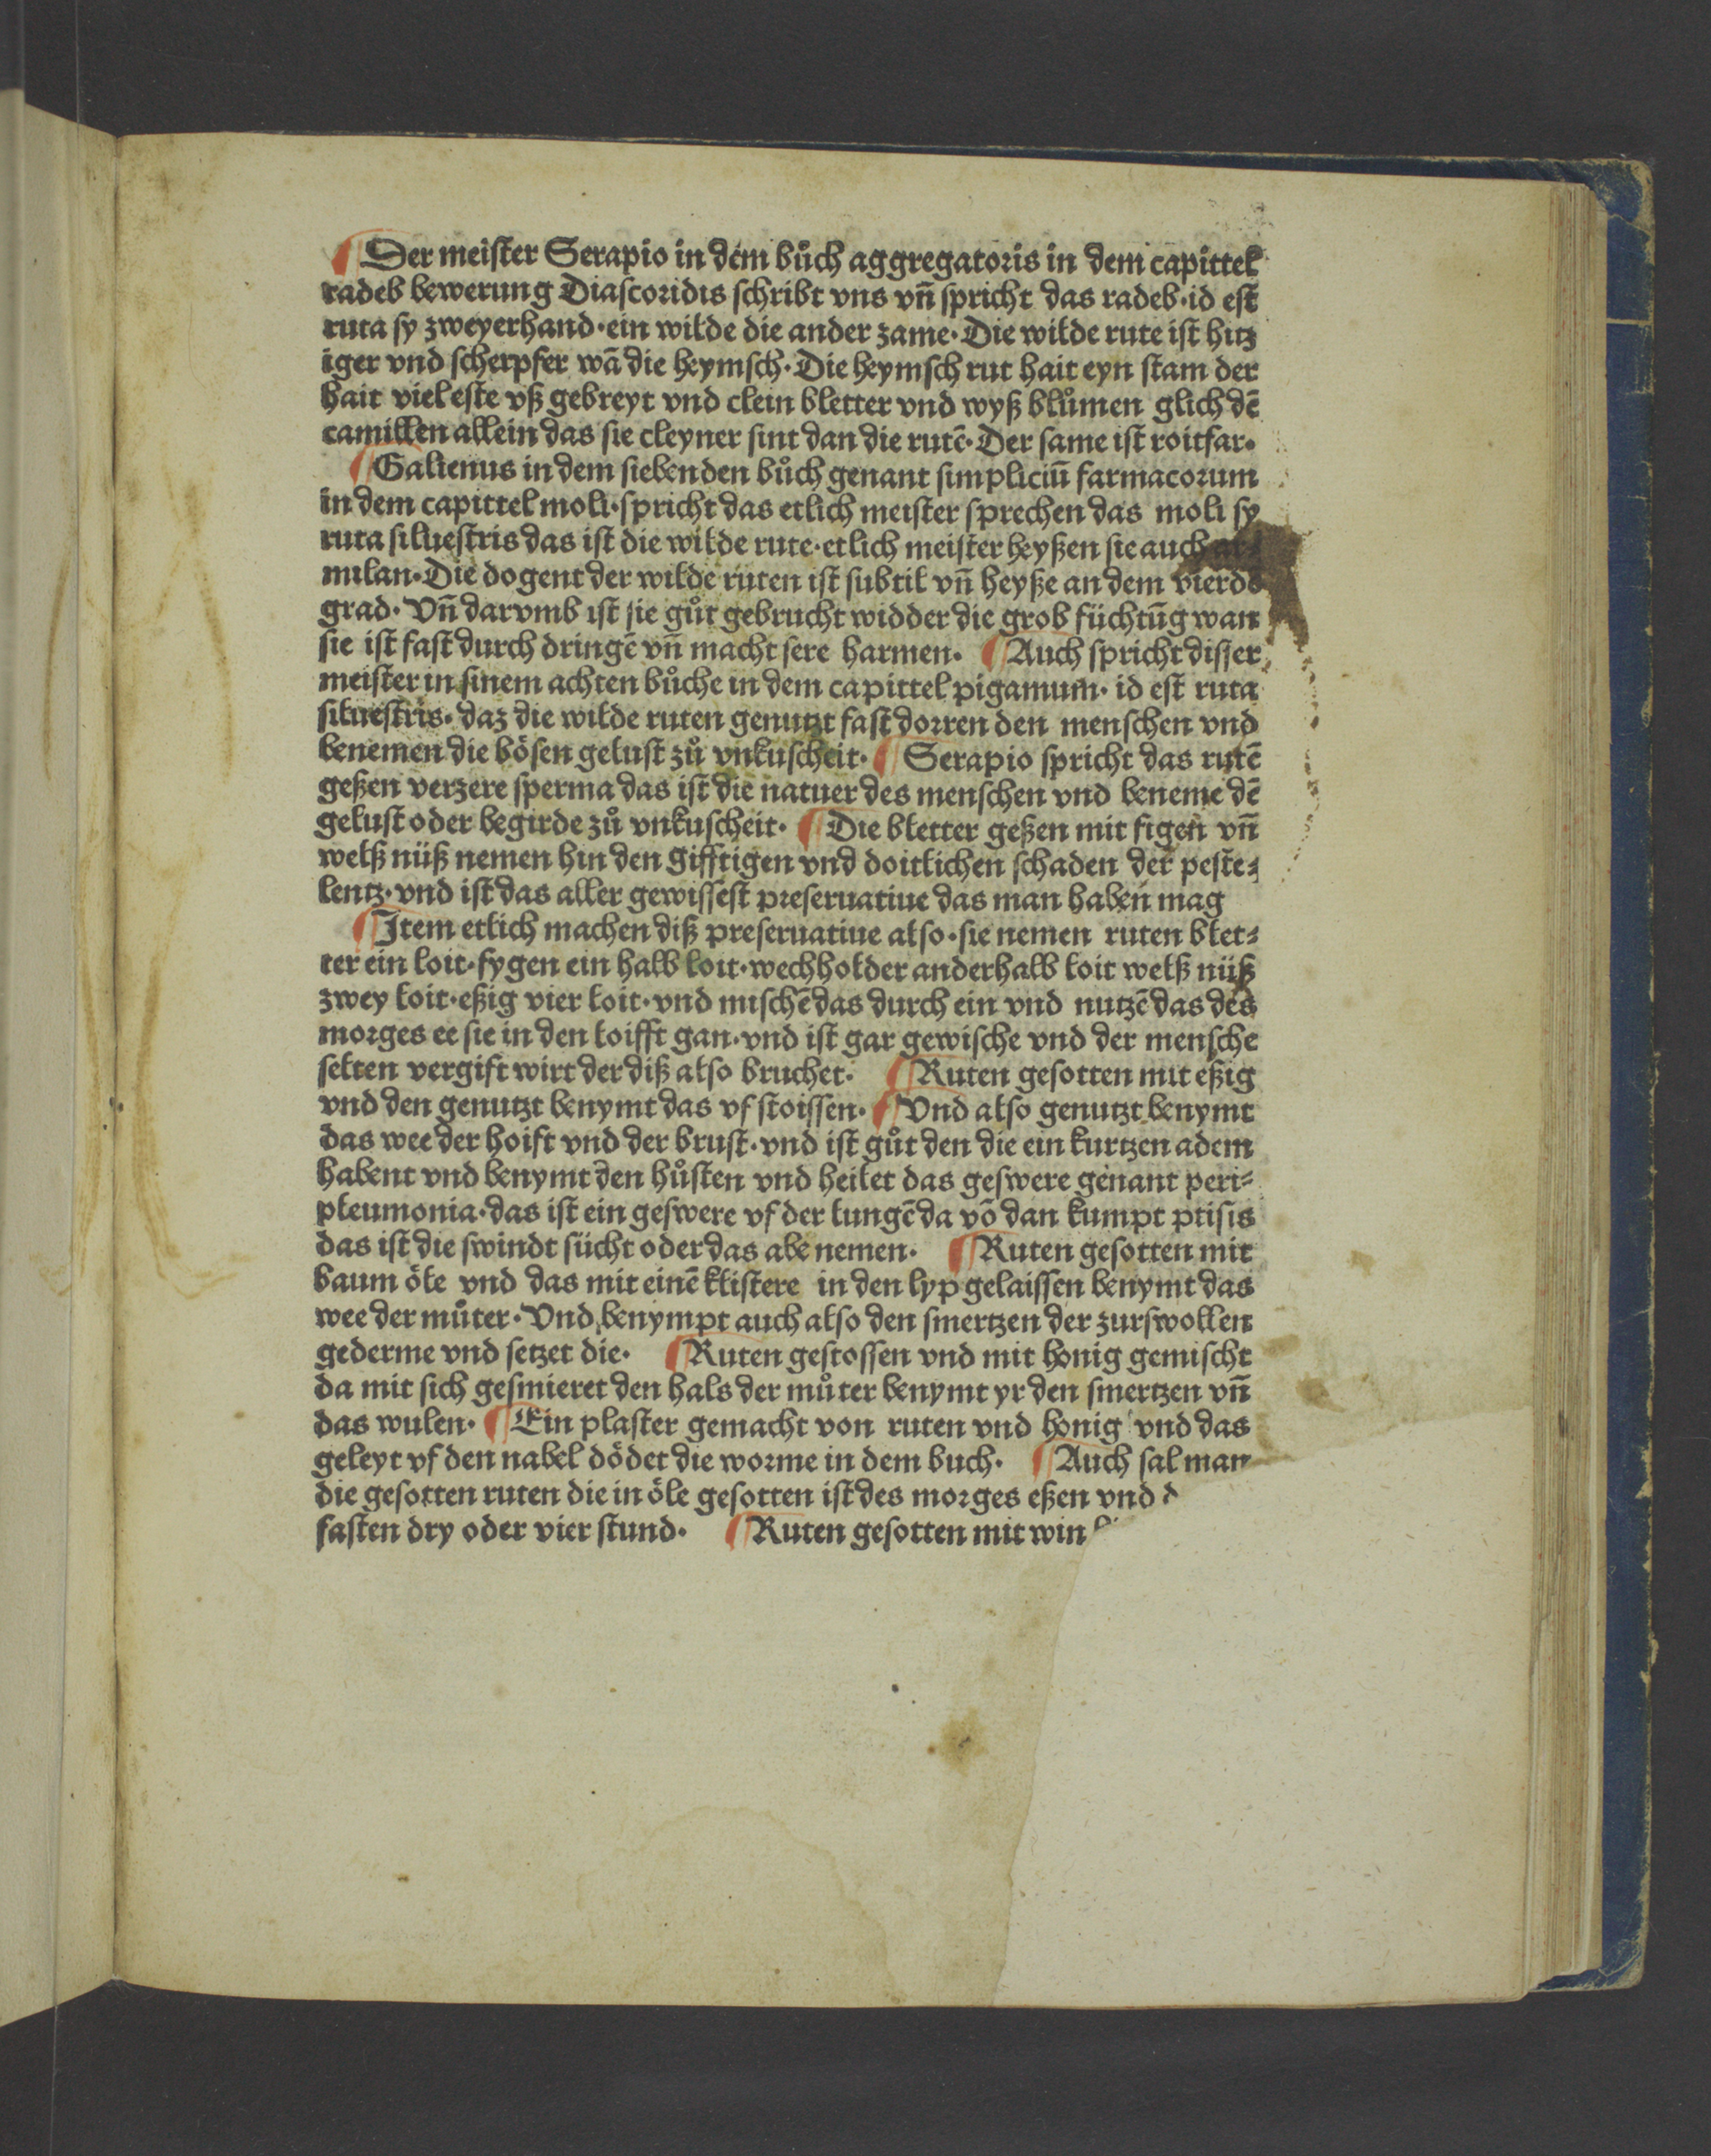 ¶ Der meister Serapio in dem bůch aggregatoris in dem capittel
radeb bewerung Diascoridis schribt vns vn̄ spricht das radeb·id est
ruta sy zweyerhand·ein wilde die ander zame·Die wilde rute ist hitz
iger vnd scherpfer wā die heymsch·Die heymsch rut hait eyn stam der
hait viel este vß gebreyt vnd clein bletter vnd wyß blůmen glich dē
camillen allein das sie cleyner sint dan die rutē·Der same ist roitfar·
¶ Galienus in dem siebenden bůch genant simpliciū farmacorum
in dem capittel moli·spricht das etlich meister sprechen das moli sy
ruta siluestris das ist die wilde rute·etlich meister heyßen sie auch ar⸗
milan·Die dogent der wilde ruten ist subtil vn̄ heyße an dem vierdē
grad·Vn̄ darvmb ist sie gůt gebrucht widder die grob füchtūg wan
sie ist fast durch dringē vn̄ macht sere harmen· ¶ Auch spricht disser
meister in sinem achten bůche in dem capittel pigamum·id est ruta
siluestris·daz die wilde ruten genutzt fast dorren den menschen vnd
benemen die bösen gelust zů vnkuscheit· ¶ Serapio spricht das rutē
geßen verzere sperma das ist die natuer des menschen vnd beneme dē
gelust oder begirde zů vnkuscheit· ¶ Die bletter geßen mit figen vn̄
welß nüß nemen hin den gifftigen vnd doitlichen schaden der peste⸗
lentz·vnd ist das aller gewissest preseruatiue das man haben mag
¶ Item etlich machen diß preseruatiue also·sie nemen ruten blet⸗
ter ein loit·fygen ein halb loit·wechholder anderhalb loit welß nüß
zwey loit·eßig vier loit·vnd mischē das durch ein vnd nutzē das des
morges ee sie in den loifft gan·vnd ist gar gewische vnd der mensche
selten vergift wirt der diß also bruchet· ¶ Ruten gesotten mit eßig
vnd den genutzt benymt das vf stoissen· ¶ Vnd also genutzt benymt
das wee der hoift vnd der brust·vnd ist gůt den die ein kurtzen adem
habent vnd benymt den hůsten vnd heilet das geswere genant peri⸗
pleumonia·das ist ein geswere vf der lungē da vō dan kumpt ptisis
das ist die swindt sücht oder das abe nemen· ¶ Ruten gesotten mit
baum öle vnd das mit einē klistere in den lyp gelaissen benymt das
wee der můter·Vnd benympt auch also den smertzen der zurswollen
gederme vnd setzet die· ¶ Ruten gestossen vnd mit honig gemischt
da mit sich gesmieret den hals der můter benymt yr den smertzen vn̄
das wulen· ¶ Ein plaster gemacht von ruten vnd honig vnd das
geleyt vf den nabel dödet die worme in dem buch· ¶ Auch sal man
die gesotten ruten die in öle gesotten ist des morges eßen vnd
fasten dry oder vier stund· ¶ Ruten gesotten mit win